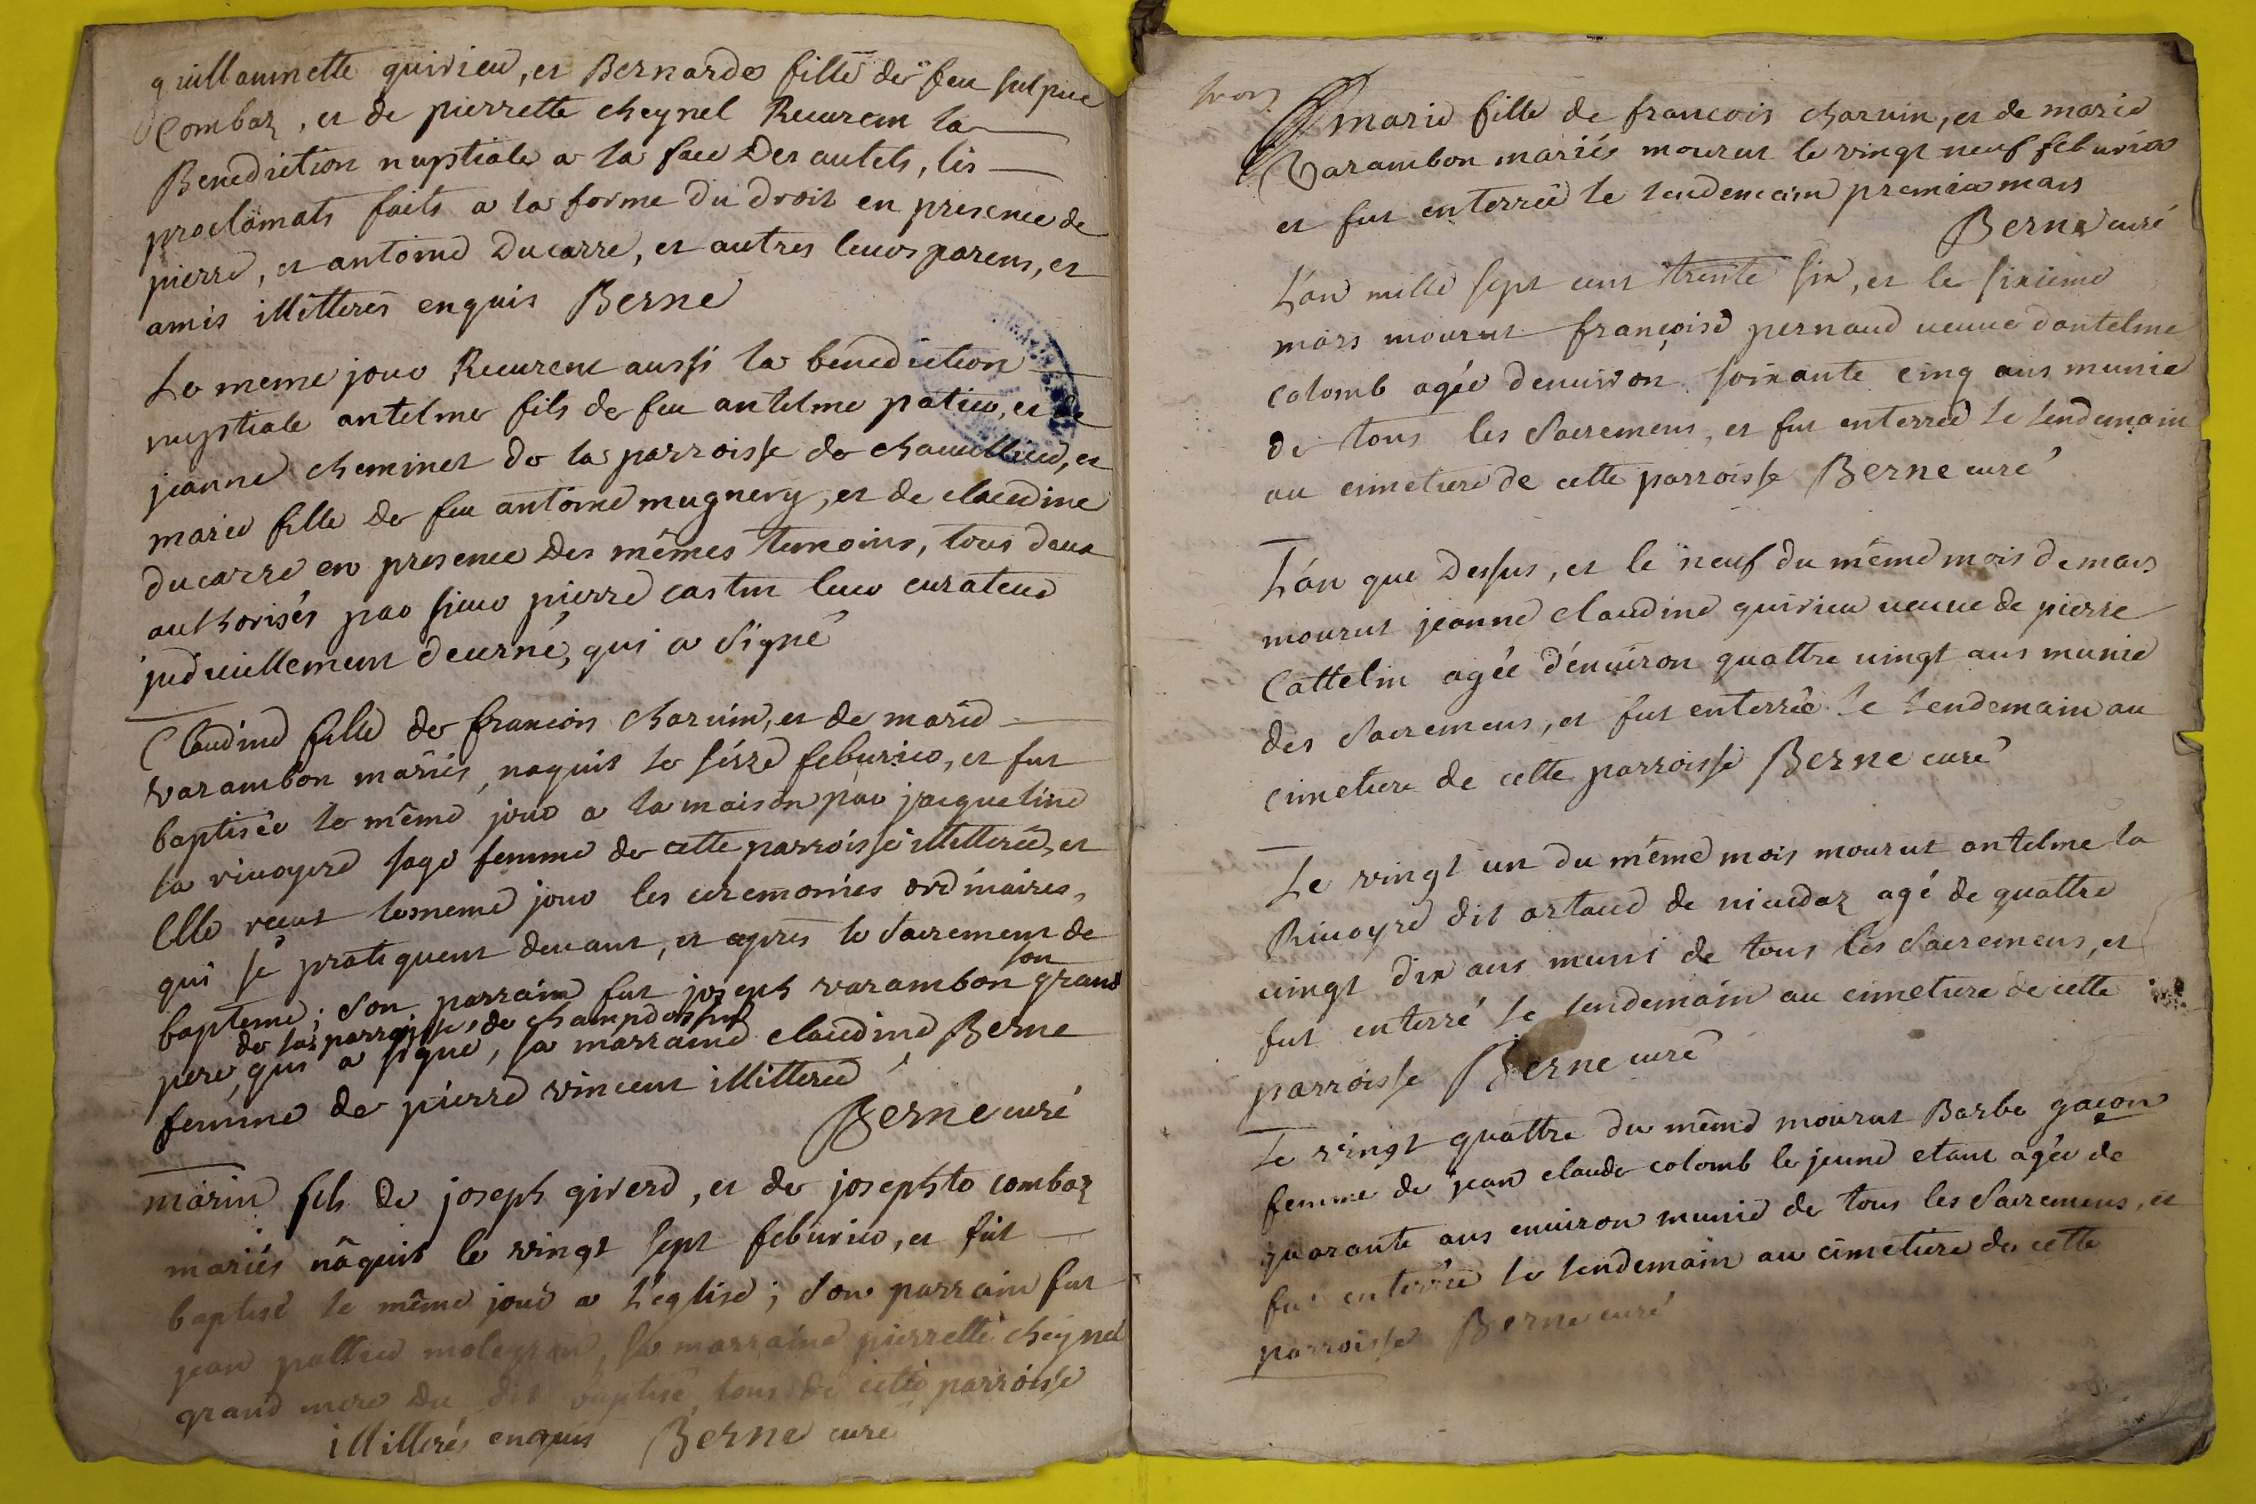 guillaumette quirieu, et Bernarde fille de feu sulpice
Combaz, et de pierrette cheynel Recurent la
Benediction nuptiale a la face Des autels, les
proclamats faits a la forme du droit en presence de
pierre, et antoine Ducarre, et autres leurs parens, et
amis illitterés enquis Berne
Le meme jour Recurent aussi la bénediction
nuptiale antelme fils de feu antelme patieu, et de
jeanne cheminet de la parroisse de et
marie fille de feu antoine mugnery, et de claudine
ducarre en presence Des mêmes temoins, tous deux
authorisés par sieur pierre castin leur curateur
judiciellement decerné, qui a signé
Claudine fille de francois charvin, et de marie
varambon mariés, naquit le séize feburier, et fut
baptisée le même jour a la maison par jacqueline
la rivoyere sage femme de cette parroisse illitterée, et
Elle recut le meme jour les ceremonies ordinaires,
qui se pratiquent devant, et aprés le Sacrement de
bapteme; Son parrain fut joseph varambon son grand
de la parroisse de champdossin
pere qui a signé, sa marraine claudine Berne
femme de pierre vincent illitteree
Berne curé
marin fils de joseph girerd, et de josephte combaz
mariés nâquit le vingt sept feburier, et fut
baptisé le même jour a l'eglise; Son parrain fut
jean pattieu , sa marraine pierrette cheynel
grand mere du dit baptisé, tous de cette parroisse
illitterés enquis Berne curé
marie fille de francois charvin, et de marie
Varambon mariés mourut le vingt neuf feburier
et fut enterrée le lendemain premier mars
Berne curé
L'an mille sept cent trente six, et le sixieme
mars mourut françoise pernoud veuve d'antelme
colomb agée d'environ soixante cinq ans munie
de tous les Sacremens, et fut enterrée le lendemain
au cimetiere de cette parroisse Berne curé
L'an que Dessus, et le neuf du même mois de mars
mourut jeanne claudine quirieu veuve de pierre
Cattelin agée d'environ quattre vingt ans munie
des Sacremens, et fut enterrée le lendemain au
cimetiere de cette parroisse Berne curé
Le vingt un du même mois mourut antelme la
Rivoyre dit artaud de agé de quattre
vingt dix ans muni de tous les Sacremens, et
fut enterré le lendemain au cimetiere de cette
parroisse Berne curé
Le vingt quattre du même mourut Barbe gaçon
femme de jean claude colomb le jeune etant agée de
quarante ans environ munie de tous les Sacremens, et
fut enterrée le lendemain au cimetiere de cette
parroisse Berne curé